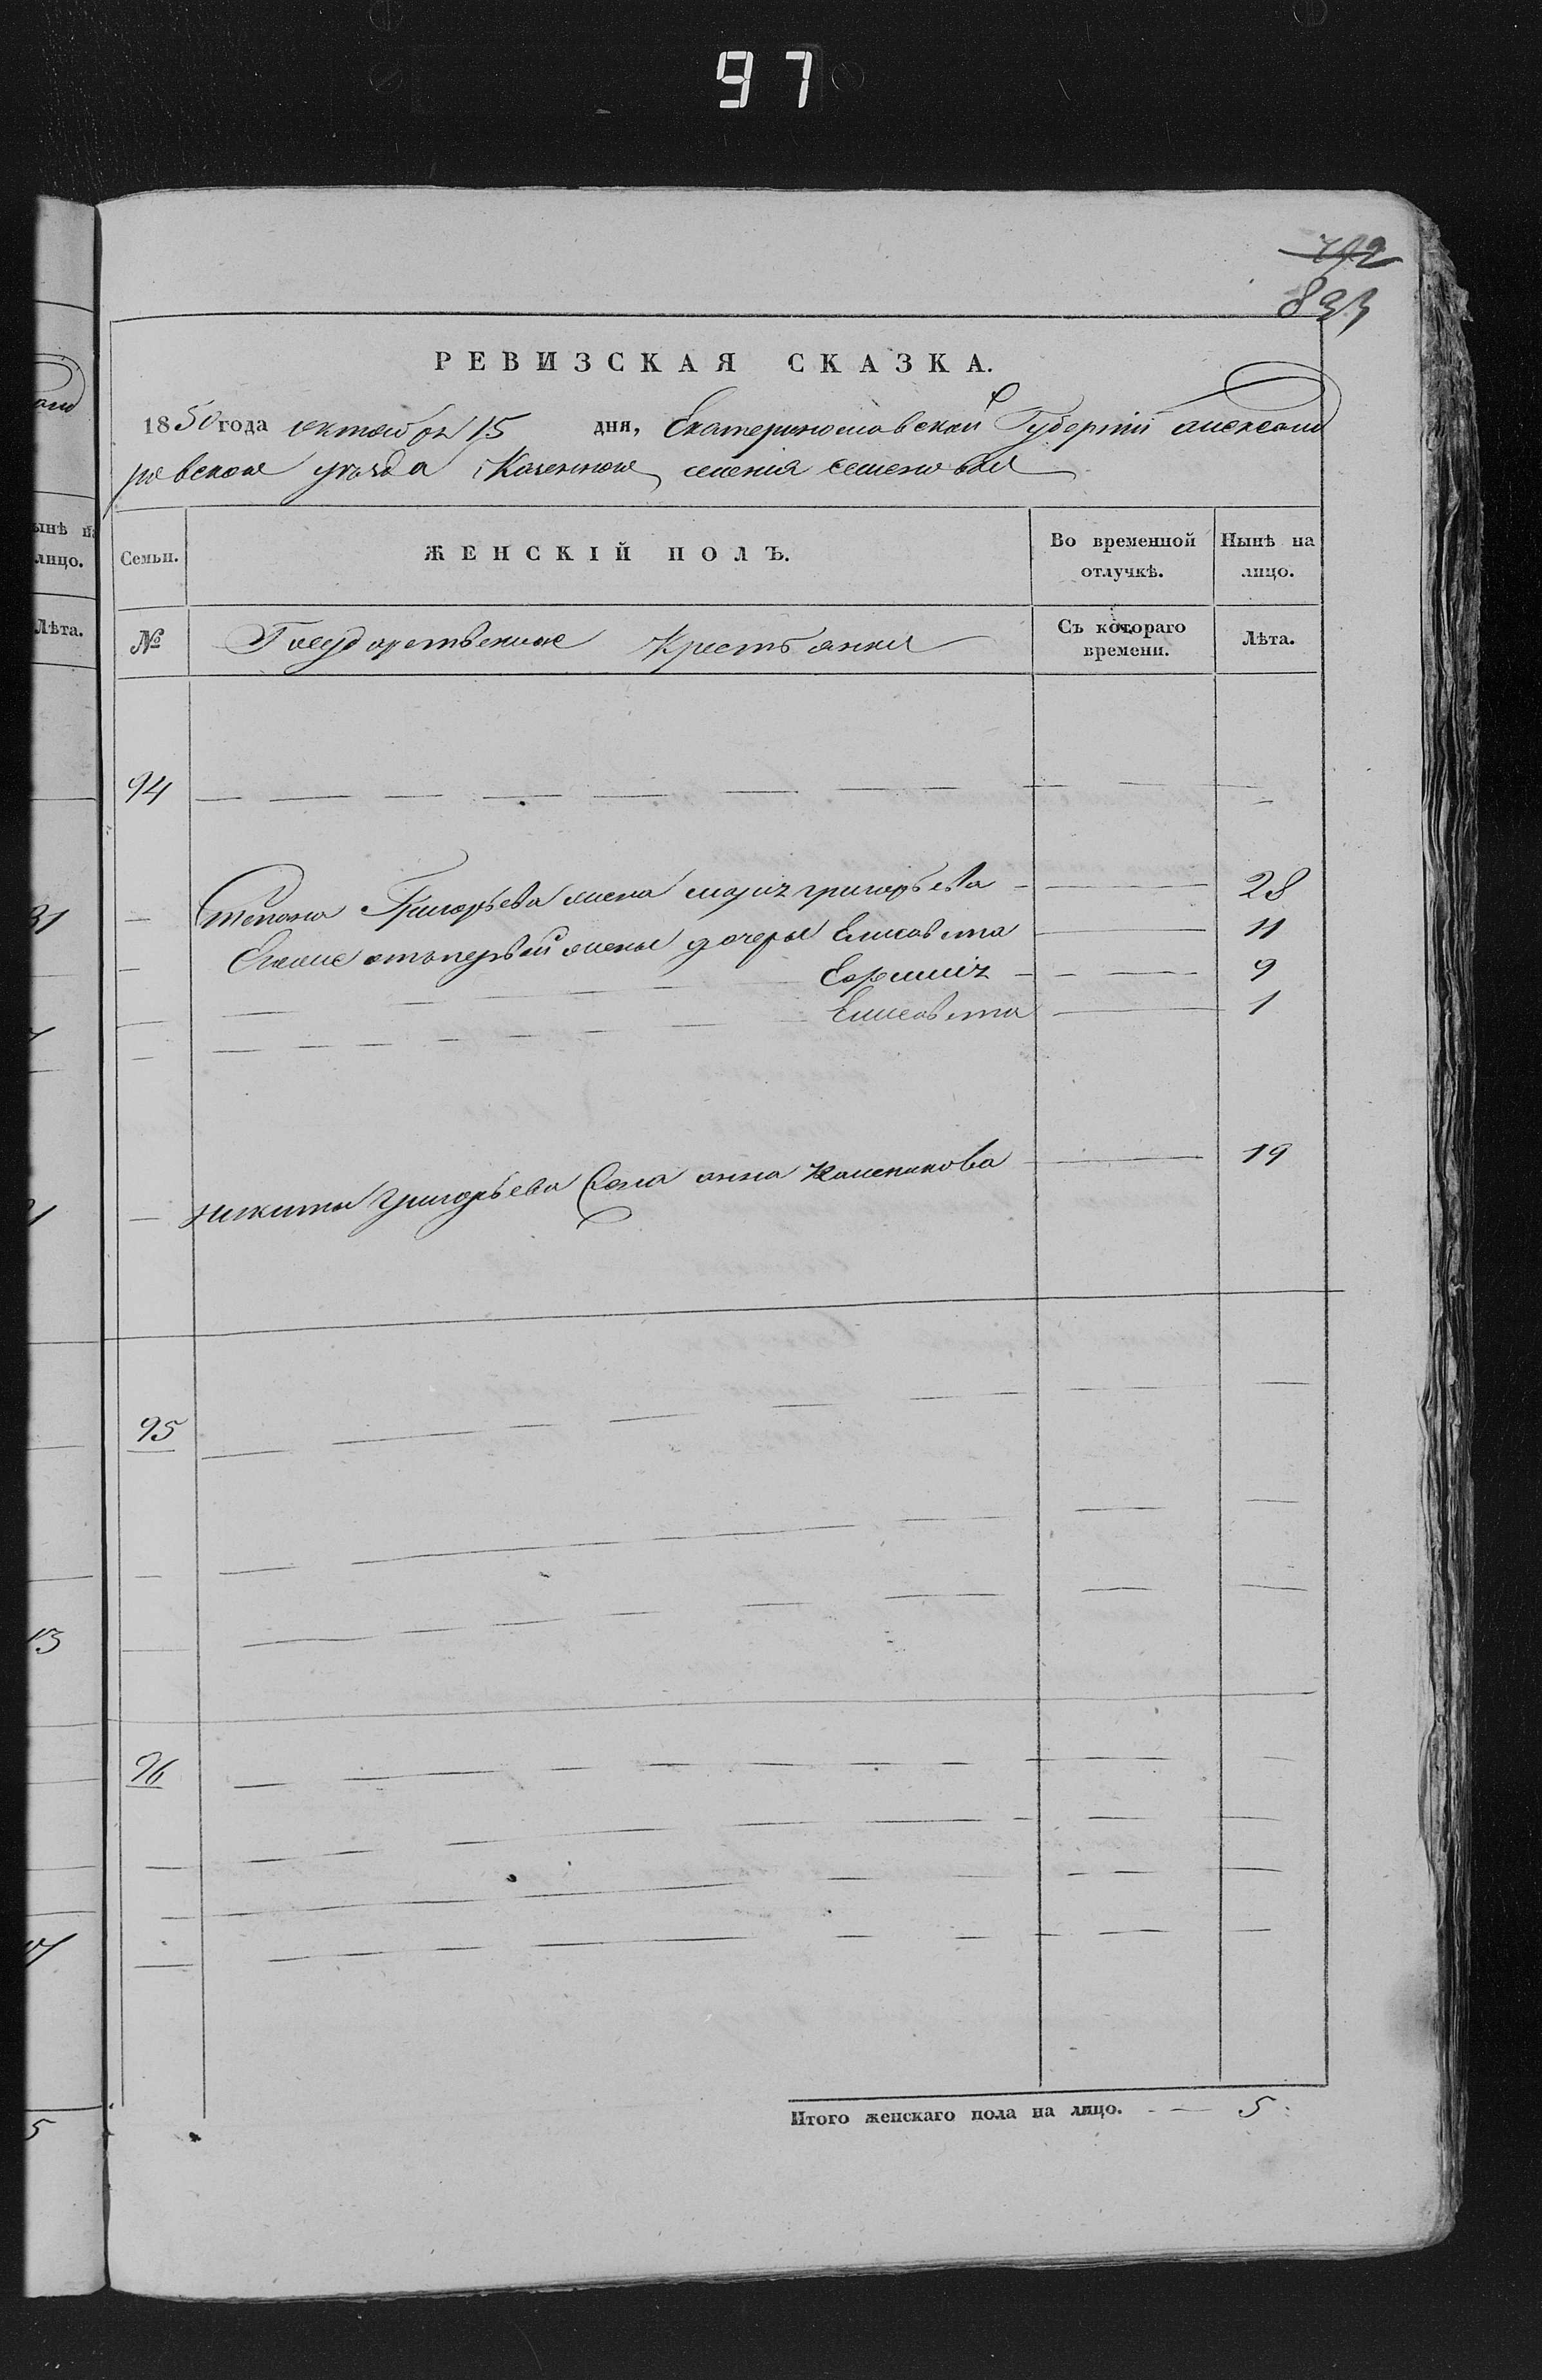 97
742
833
РЕВИЗСКАЯ СКАЗКА.
1850 года октября 15 дня, Екатеринославской Губерніи александ
ровскаго уезда Казеннаго селенія семеновки
Семьи. ЖЕНСКІЙ ПОЛЪ. Во временной отлучкѣ. Нынѣ на лицо.
№ Государственные Крестьянки Съ котораго времени. Лѣта.
94
Степана Григорьева жена григорьева 28
отъ первой жены дочеры Елисавета 11
9
Елисавета 1
никиты Григорьева анна 19
95
96
Итого женскаго пола на лицо. 5
ынѣ н
лицо.
Лѣта.
31
13
5